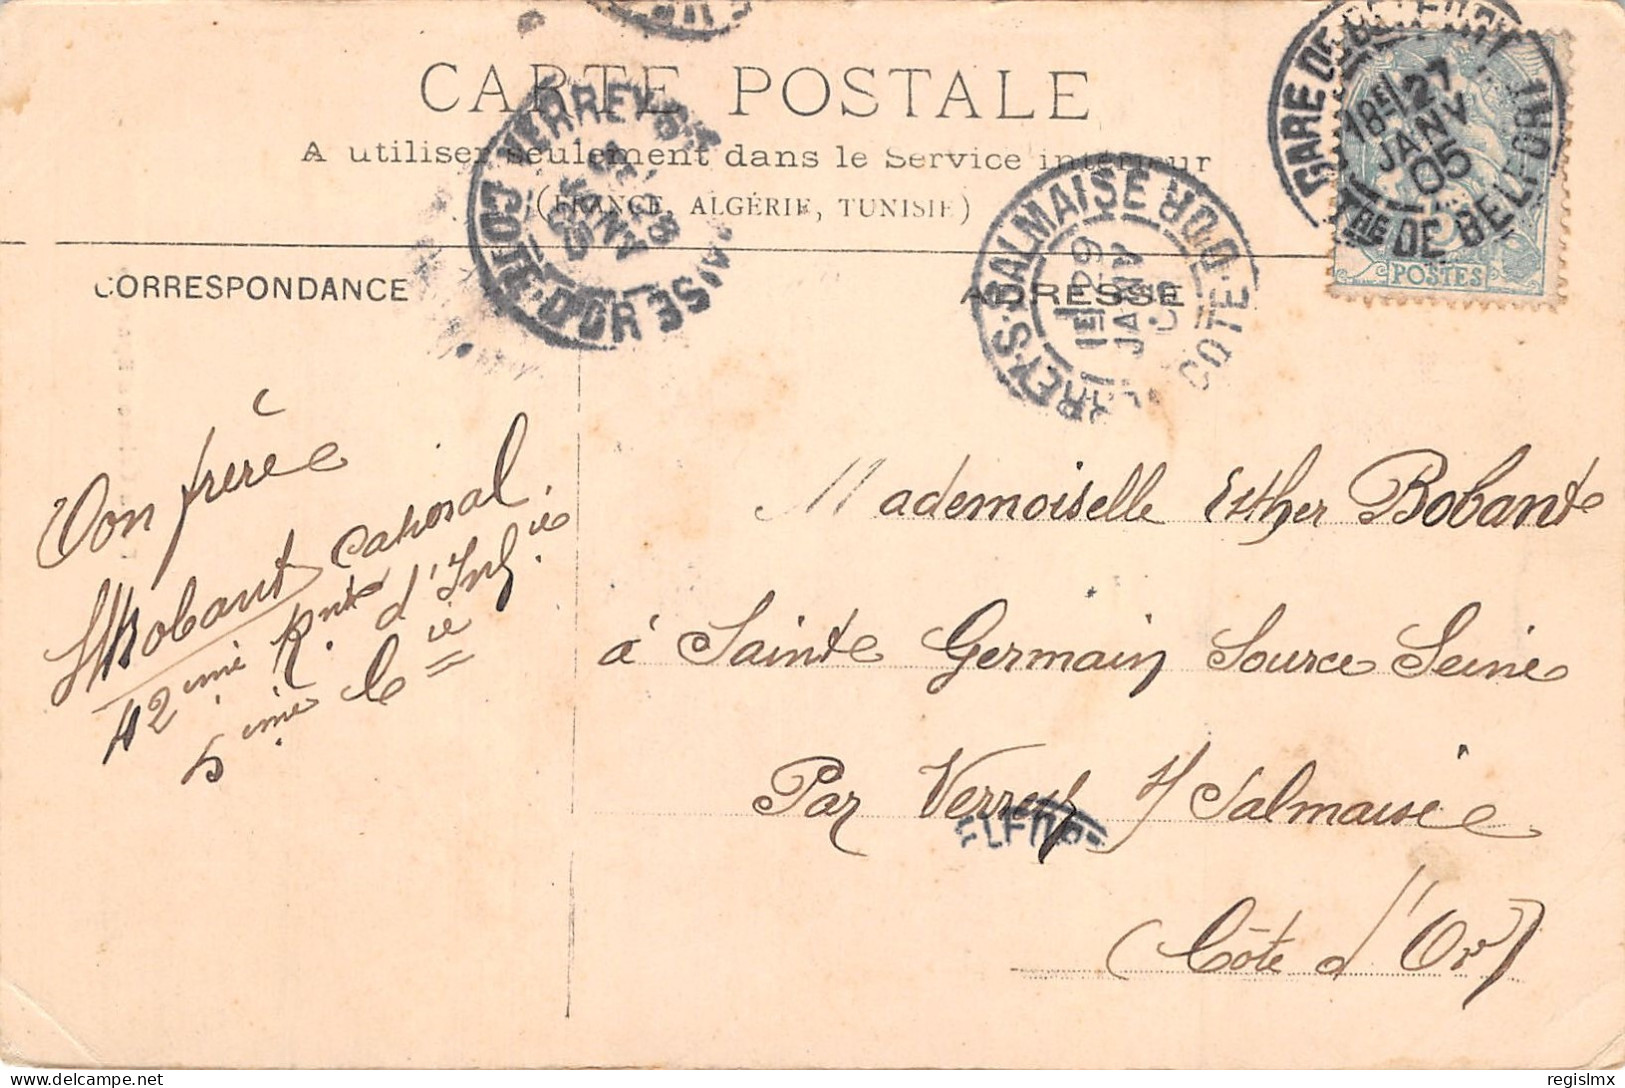 CARTE POSTALE
A utiliser seulement dans le Service intérieur
(FRANCE, ALGÉRIE, TUNISIE)
CORRESPONDANCE
ADRESSE
VERREY-S-SALMAISE
COTE-D'OR
VERREY-S-SALMAISE COTE-D'OR
1E 29
JANV
05
GARE DE BELFORT
18E 27
JANV
05
TRE DE BELFORT
POSTES
Ton frère
Bobant caporal
42ème Rgnt d'Infie
5ème Cie
Mademoiselle Esther Bobante
à Sainte Germain Source Seine
Par Verrey s/ Salmaise
(Côte d'Or)
© regislmx
delcampe.net